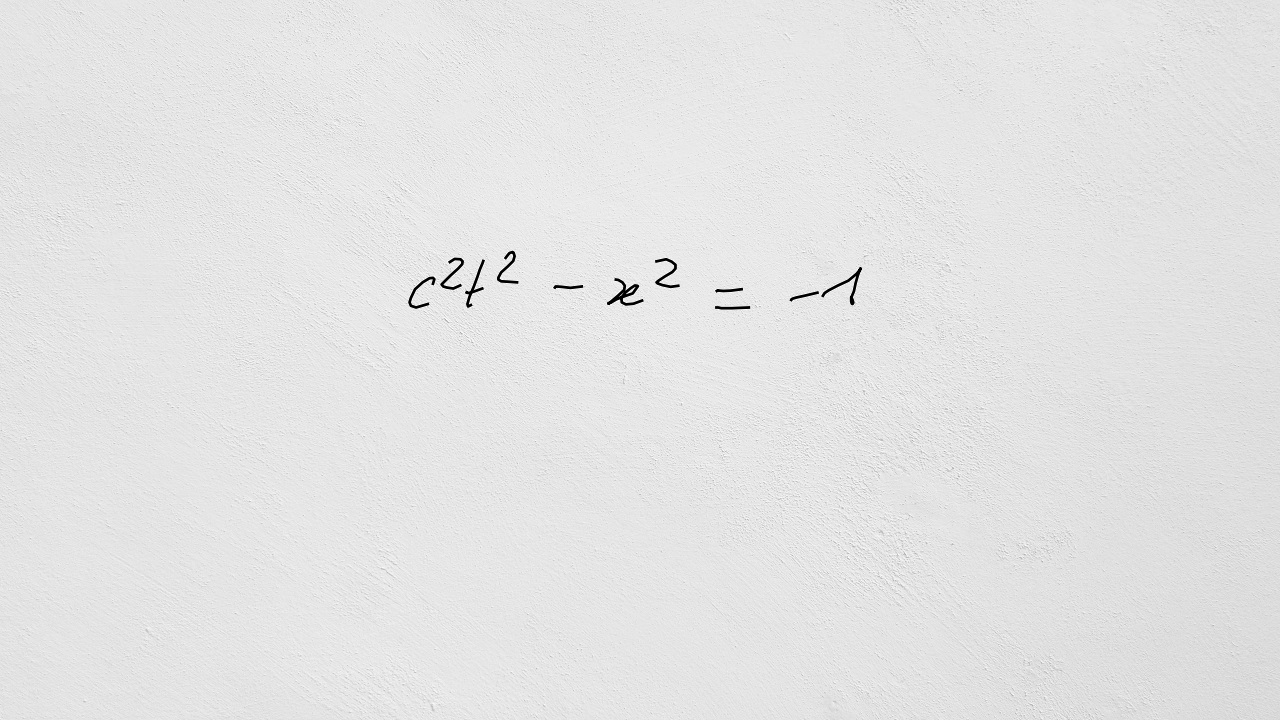 c²t² - x² = -1